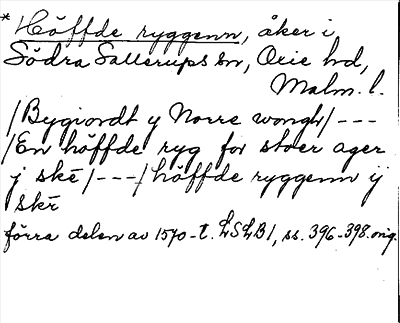 * Höffde ryggenn, åker i
Södra Sallerups sn, Oxie hd,
Malm. l.
/Bygiordt y Norre wongh/ ---
/En höffde ryg for stoer ager
y skē/ ---/ höffde ryggenn ij
skr̄
förra delen av 1570-t. LSLB1, ss. 396-398. orig.